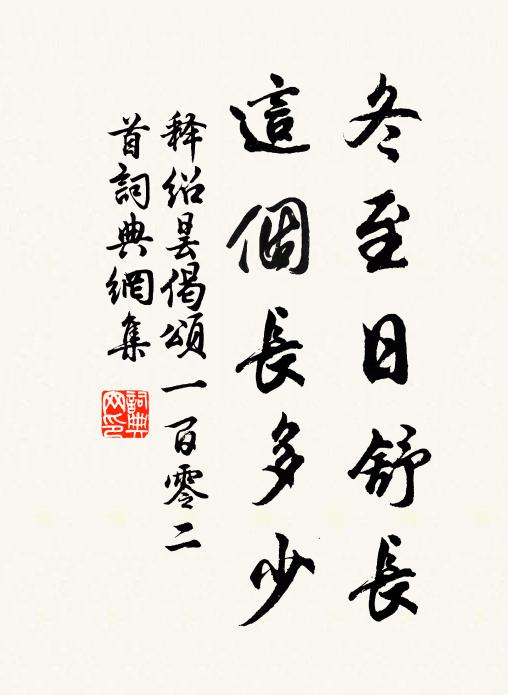 冬至日舒長
這個長多少
释绍昙偈頌一百零二
首詞典網集
詞典
网印